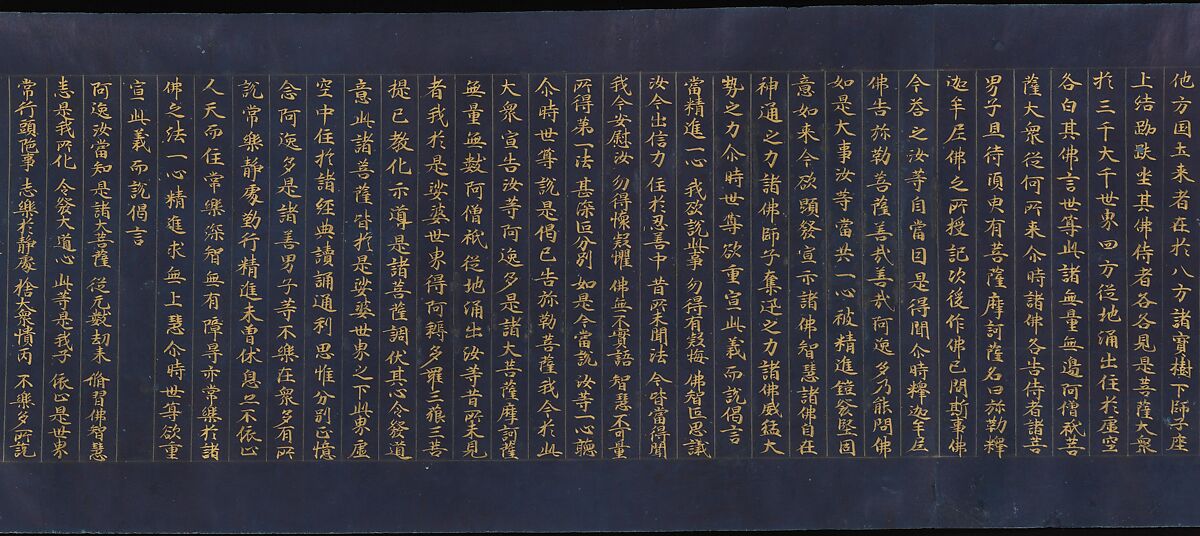 他方国土来者在於八方諸寶樹下師子座
上結跏趺坐其佛侍者各各見是菩薩大衆
於三千大千世界四方從地涌出住於虛空
各白其佛言世尊此諸無量無邊阿僧祇菩
薩大衆從何所来尒時諸佛各告侍者諸善
男子且待須臾有菩薩摩訶薩名曰弥勒釋
迦牟尼佛之所授記次後作佛已問斯事佛
今荅之汝等自當因是得聞尒時釋迦牟尼
佛告弥勒菩薩善哉善哉阿逸多乃能問佛
如是大事汝等當共一心被精進鎧發堅固
意如来今欲顯發宣示諸佛智慧諸佛自在
神通之力諸佛師子奮迅之力諸佛威猛大
勢之力尒時世尊欲重宣此義而說偈言
當精進一心 我欲說此事 勿得有疑悔 佛智叵思議
汝今出信力 住於忍善中 昔所未聞法 今皆當得聞
我今安慰汝 勿得懷疑懼 佛無不實語 智慧不可量
所得第一法 甚深叵分別 如是今當說 汝等一心聽
尒時世尊說是偈已告弥勒菩薩我今於此
大衆宣告汝等阿逸多是諸大菩薩摩訶薩
無量無數阿僧祇從地涌出汝等昔所未見
者我於是娑婆世界得阿耨多羅三藐三菩
提已教化示導是諸菩薩調伏其心令發道
意此諸菩薩皆於是娑婆世界之下此界虛
空中住於諸經典讀誦通利思惟分別正憶
念阿逸多是諸善男子等不樂在衆多有所
說常樂靜處勤行精進未曾休息亦不依止
人天而住常樂深智無有障导亦常樂於諸
佛之法一心精進求無上慧尒時世尊欲重
宣此義而說偈言
阿逸汝當知 是諸大菩薩 從无數劫来 脩習佛智慧
悉是我所化 令發大道心 此等是我子 依止是世界
常行頭陁事 志樂於靜處 捨大衆憒丙 不樂多所說